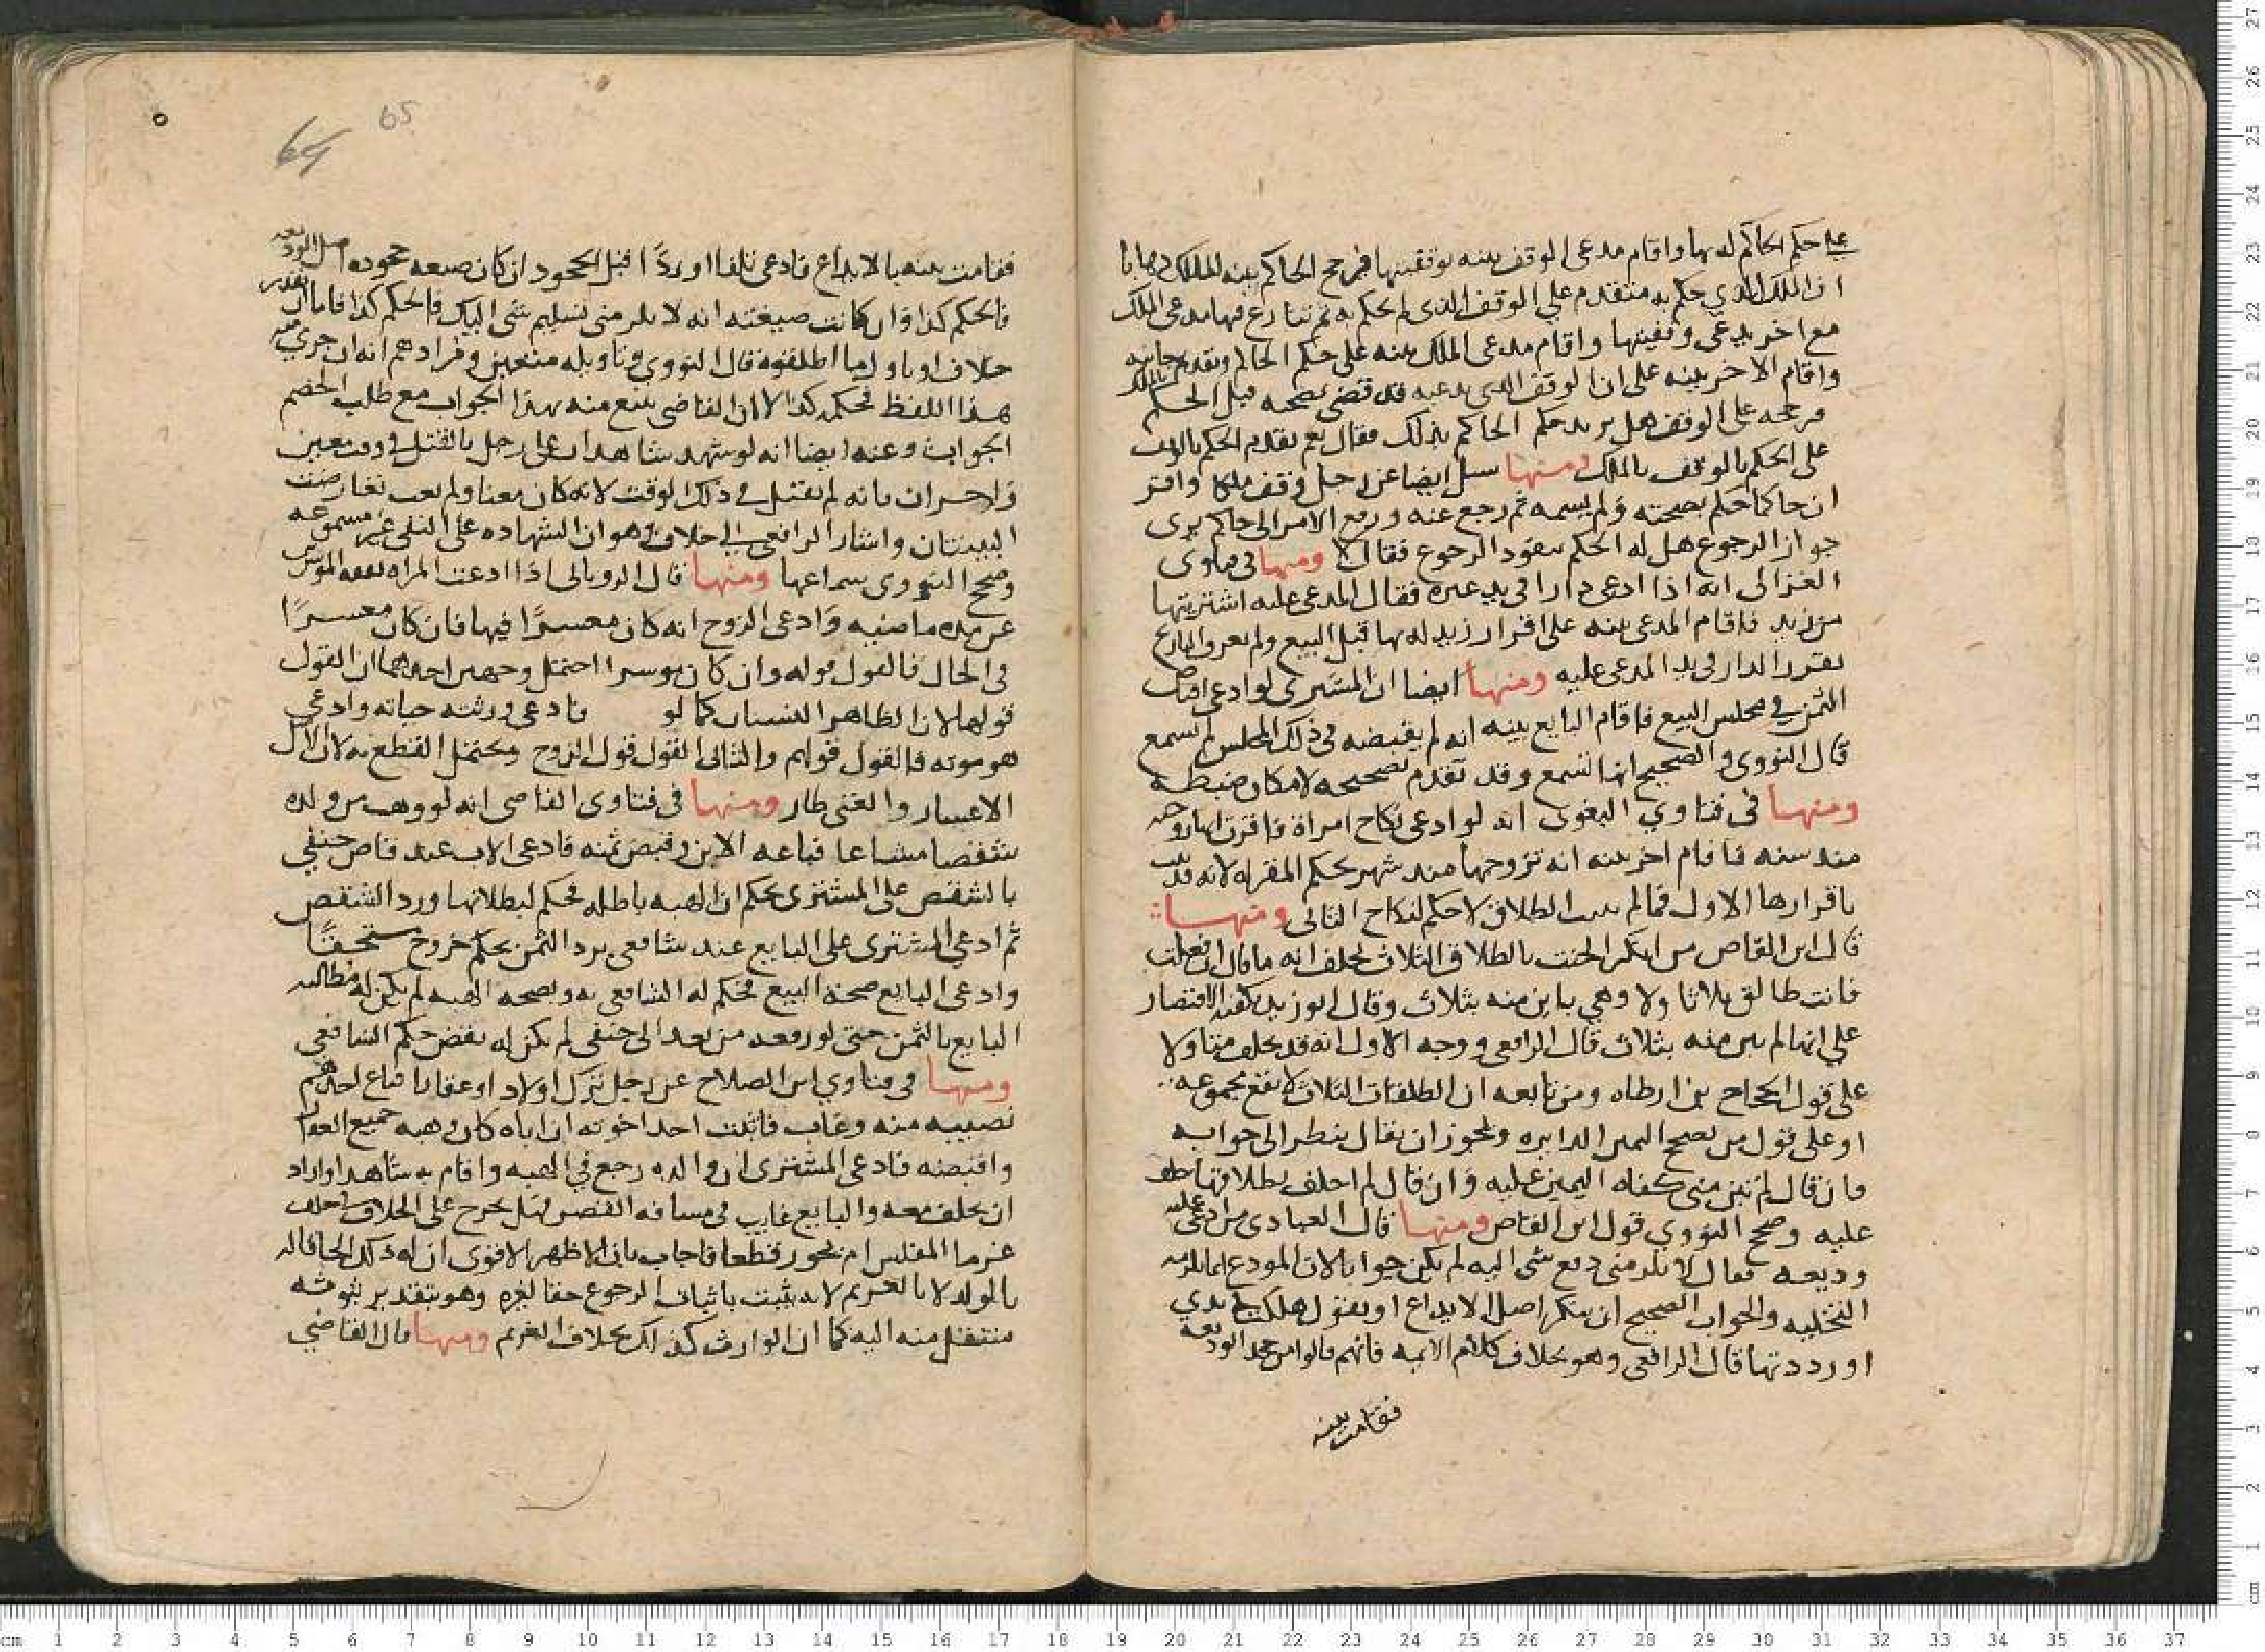 على حكم الحاكم له بها واقام مدعى الوقف بينه بوقفيتها فرجح الحاكم بينه الملك ذهابا
ان الملك الذي حكم به متقدم علي الوقف الذى لم يحكم به ثم تنازع فيها مدعى الملك
مع اخر يدعى وقفيتها واقام مدعى الملك بينه على حكم الحاكم وتقدم جانبه
واقام الاخر بينه على ان الوقف الذى يدعيه قد قضى بصحته قبل الحكم بالملك
مرجحه على الوقف هل يريد حكم الحاكم بذلك فقال نعم تقدم الحكم بالوقف
على الحكم بالوقف بالملك ومنها سيل ايضا عن رجل وقف ملكا واقر
ان حاكما حكم بصحته ولم يسمه ثم رجع عنه ورفع الامر الى حاكم يرى
جواز الرجوع هل له الحكم بنفوذ الرجوع فقال لا ومنها في فتاوى
الغزالى انه اذا ادعى دارا في يد غيره فقال المدعى عليه اشتريتها
من زيد فاقام المدعى بينه على اقرار زيد له بها قبل البيع ولم يعرف التاريخ
تقرر الدار في يد المدعى عليه ومنها ايضا ان المشترى لو ادعى اقباض
الثمن في مجلس البيع فاقام البايع بينه انه لم يقبضه في ذلك المجلس لم تسمع
قال النووى والصحيح انها تسمع وقد تقدم تصحيحه لامكان ضبطه
ومنها في فتاوي البغوى انه لو ادعى نكاح امراة فاقرت انها زوجته
منذ سنه فاقام اخر بينه انه تزوجها منذ شهر يحكم للمقر له لانه قد ثبت
باقرارها الاول فما لم يثبت الطلاق لا حكم لنكاح الثانى ومنها
قال ابن القاص من انكر الحنث بالطلاق الثلاث يحلف انه ما قال ان فعلت
فانت طالق ثلاثا ولا وهي باين منه بثلاث وقال ابو زيد يكفيه الاقتصار
علي انها لم تبن منه بثلاث قال الرافعى ووجه الاول انه قد يحلف متاولا
على قول الحجاج بن ارطاه ومن تابعه ان الطلقات الثلاث لا تقع مجموعه
او على قول من يصحح اليمين الدايره ويجوز ان يقال ينظر الى جوابه
فان قال لم تبن منى كفاه اليمين عليه وان قال لم احلف بطلاقها حلف
عليه وصحح النووي قول ابن القاص ومنها قال العبادى من ادعى عليه
وديعه فقال لا يلزمنى دفع شى اليه لم يكن جوابا لان المودع انما يلزمه
التخليه والجواب الصحيح ان ينكر اصل الايداع او يقول هلكت في يدي
او رددتها قال الرافعى وهو بخلاف كلام الايمه فانهم قالوا من جحد الوديعه
فقامت بينه
65
فقامت بينه بالايداع فادعى تلفا او ردا قبل الجحود ان كان صيغه جحوده اصل الوديعه
فالحكم كذا وان كانت صيغته انه لا يلزمنى تسليم شى اليك فالحكم كذا فاما ان يقدر
خلاف او ياول ما اطلقوه قال النووي وتاويله متعين ومرادهم انه ان جرى منه
هذا اللفظ فحكمه كذا الا ان القاضى يقنع منه بهذا الجواب مع طلب الخصم
الجواب وعنه ايضا انه لو شهد شاهدان على رجل بالقتل في وقت معين
واخران بانه لم يقتل في ذلك الوقت لانه كان معنا ولم يغب تعارضت
البينتان واشار الرافعى الى خلاف وهو ان الشهاده على النفى غير مسموعه
وصحح النووى سماعها ومنها قال الرويانى اذا ادعت المراه نفقه الموسر
عن مده ماضيه وادعى الزوج انه كان معسرا فيها فان كان معسرا
فى الحال فالقول قوله وان كان موسرا احتمل وجهين احدهما ان القول
قولها لان الظاهر اليسار كما لو فادعى ورثته حياته وادعى
هو موته فالقول قولهم والثانى القول قول الزوج ويحتمل القطع به لان الاصل
الاعسار والغنى طار ومنها فى فتاوى القاضى انه لو وهب من ولده
شقصا مشاعا فباعه الابن وقبض ثمنه فادعى الاب عند قاض حنفي
بالشقص على المشترى بحكم ان الهبه باطله فحكم ببطلانها ورد الشقص
ثم ادعي المشترى على البايع عند شافعى برد الثمن بحكم خروجه مستحقا
وادعى البايع صحة البيع فحكم له الشافعى به وبصحه الهبه لم يكن له مطالبه
البايع بالثمن حتى لو رفعه من بعد الى حنفى لم يكن له نقض حكم الشافعى
ومنها فى فتاوي ابن الصلاح عن رجل ترك اولاد او عقارا فباع احدهم
نصيبه منه وغاب فاثبت احد اخوته ان اباه كان وهبه جميع العقار
واقبضه فادعى المشترى ان والده رجع في الهبه واقام به شاهدا واراد
ان يحلف معه والبايع غايب فى مسافه القصر فهل يخرج على الخلاف في حلف
غرما المفلس ام يجوز قطعا فاجاب بان الاظهر الاقوى ان له ذلك الحاقا له
بالولد لا بالغريم لانه يثبت باثبات الرجوع حقا لغيره وهو بتقدير ثبوته
منتقل منه اليه كما ان الوارث كذلك بخلاف الغريم ومنها قال القاضي